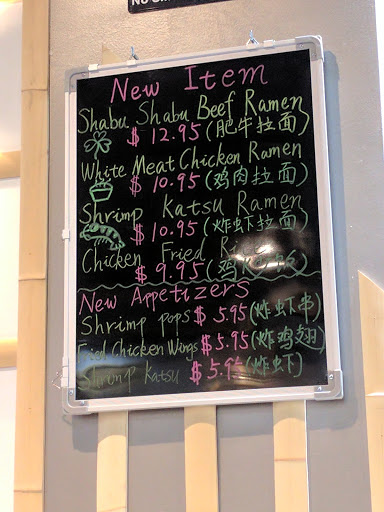 New Item
Shabu Shabu Beef Ramen
$ 12.95 (肥牛拉面)
White Meat Chicken Ramen
$ 10.95 (鸡肉拉面)
Shrimp Katsu Ramen
$ 10.95 (炸虾拉面)
Chicken Fried
$ 9.95
New Appetizers
Shrimp pops $ 5.95 (炸虾串)
Fried Chicken Wings $ 5.95 (炸鸡翅)
Shrimp Katsu $ 5.95 (炸虾)